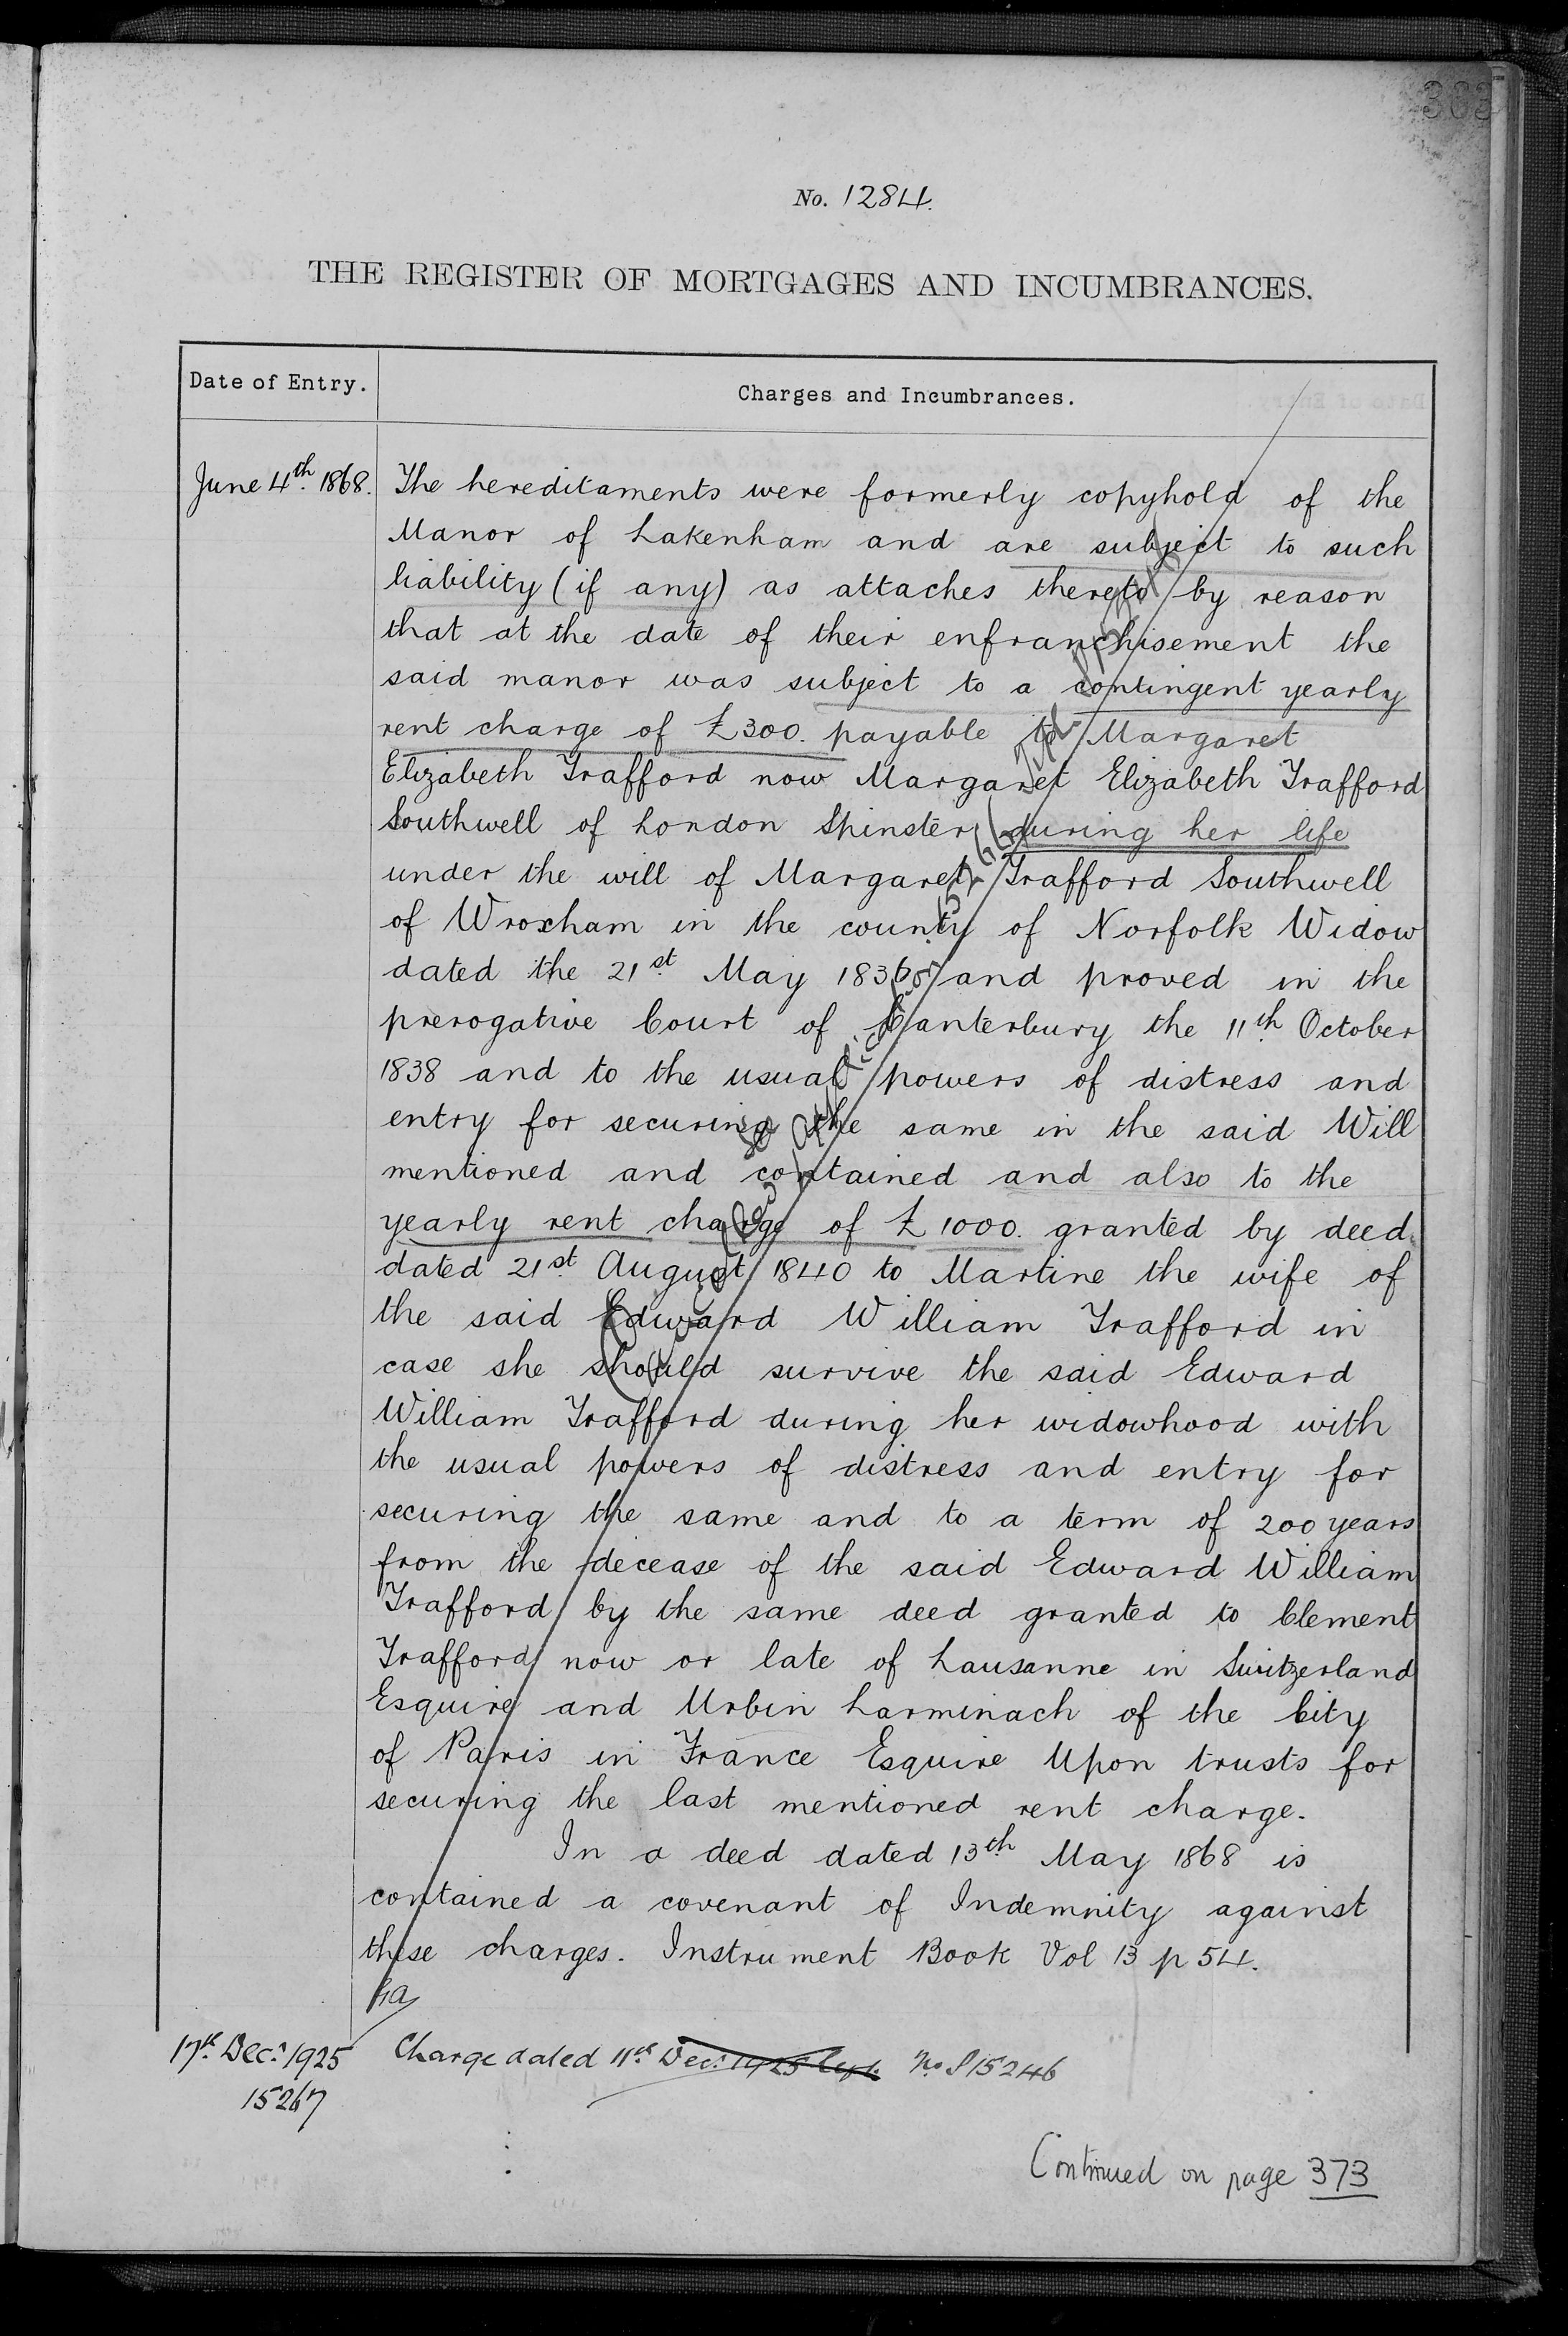 363
No. 1284.
THE REGISTER OF MORTGAGES AND INCUMBRANCES.
Date of Entry.
Charges and Incumbrances.
June 4th. 1868.
The hereditaments were formerly copyhold of the
Manor of Lakenham and are subject to such
liability (if any) as attaches thereto by reason
that at the date of their enfranchisement the
said manor was subject to a contingent yearly
rent charge of £300. payable to Margaret
Elizabeth Trafford now Margaret Elizabeth Trafford
Southwell of London Spinster during her life
under the will of Margaret Trafford Southwell
of Wroxham in the county of Norfolk Widow
dated the 21st. May 1836 and proved in the
prerogative Court of Canterbury the 11th. October
1838 and to the usual powers of distress and
entry for securing the same in the said Will
mentioned and contained and also to the
yearly rent charge of £1000. granted by deed
dated 21st. August 1840 to Martine the wife of
the said Edward William Trafford in
case she should survive the said Edward
William Trafford during her widowhood with
the usual powers of distress and entry for
securing the same and to a term of 200 years
from the decease of the said Edward William
Trafford by the same deed granted to Clement
Trafford now or late of Lausanne in Switzerland
Esquire and Urbin Larminach of the City
of Paris in France Esquire Upon trusts for
securing the last mentioned rent charge.
In a deed dated 13th. May 1868 is
contained a covenant of Indemnity against
these charges. Instrument Book Vol 13 p 54.
17th. Decr. 1925
15267
Charge dated 11th. Decr. 1925 No. S 15246
Continued on page 373